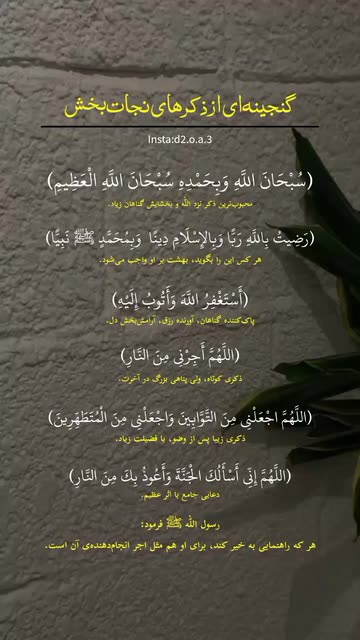 گنجینه‌ای از ذکرهای نجات‌بخش
Insta:d2.o.a.3
(سُبْحَانَ اللَّهِ وَبِحَمْدِهِ سُبْحَانَ اللَّهِ الْعَظِيمِ)
محبوب‌ترین ذکر نزد الله و بخشایش گناهان زیاد.
(رَضِيتُ بِاللَّهِ رَبًّا وَبِالْإِسْلَامِ دِينًا وَبِمُحَمَّدٍ ﷺ نَبِيًّا)
هر کس این را بگوید، بهشت بر او واجب می‌شود.
(أَسْتَغْفِرُ اللَّهَ وَأَتُوبُ إِلَيْهِ)
پاک‌کننده گناهان، آورنده رزق، آرامش‌بخش دل.
(اللَّهُمَّ أَجِرْنِي مِنَ النَّارِ)
ذکری کوتاه، ولی پناهی بزرگ در آخرت.
(اللَّهُمَّ اجْعَلْنِي مِنَ التَّوَّابِينَ وَاجْعَلْنِي مِنَ الْمُتَطَهِّرِينَ)
ذکری زیبا پس از وضو، با فضیلت زیاد.
(اللَّهُمَّ إِنِّي أَسْأَلُكَ الْجَنَّةَ وَأَعُوذُ بِكَ مِنَ النَّارِ)
دعایی جامع با اثر عظیم.
رسول الله ﷺ فرمود:
هر که راهنمایی به خیر کند، برای او هم مثل اجر انجام‌دهنده‌ی آن است.